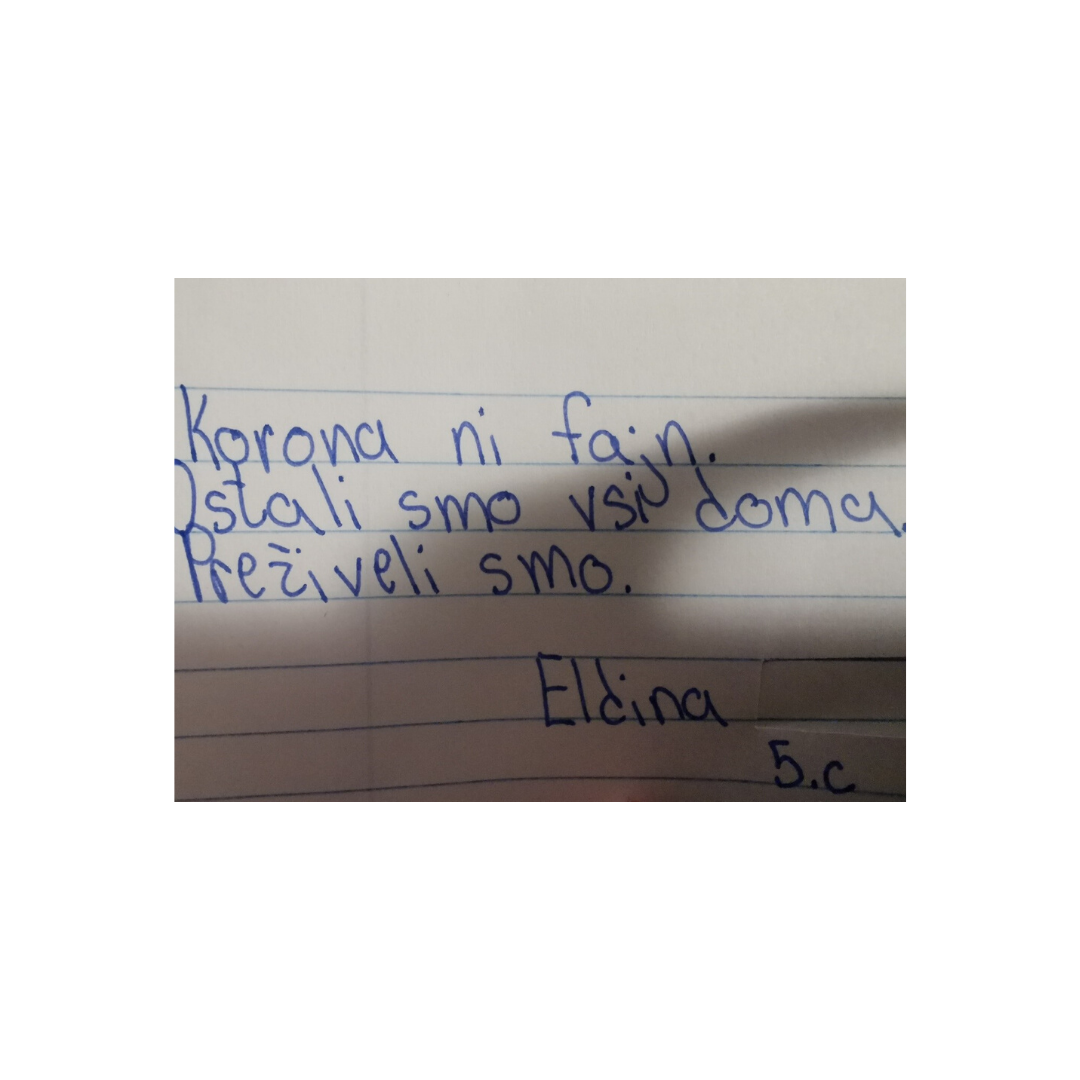 Korona ni fajn.
Ostali smo vsi doma.
Preživeli smo.
Eldina
5.c